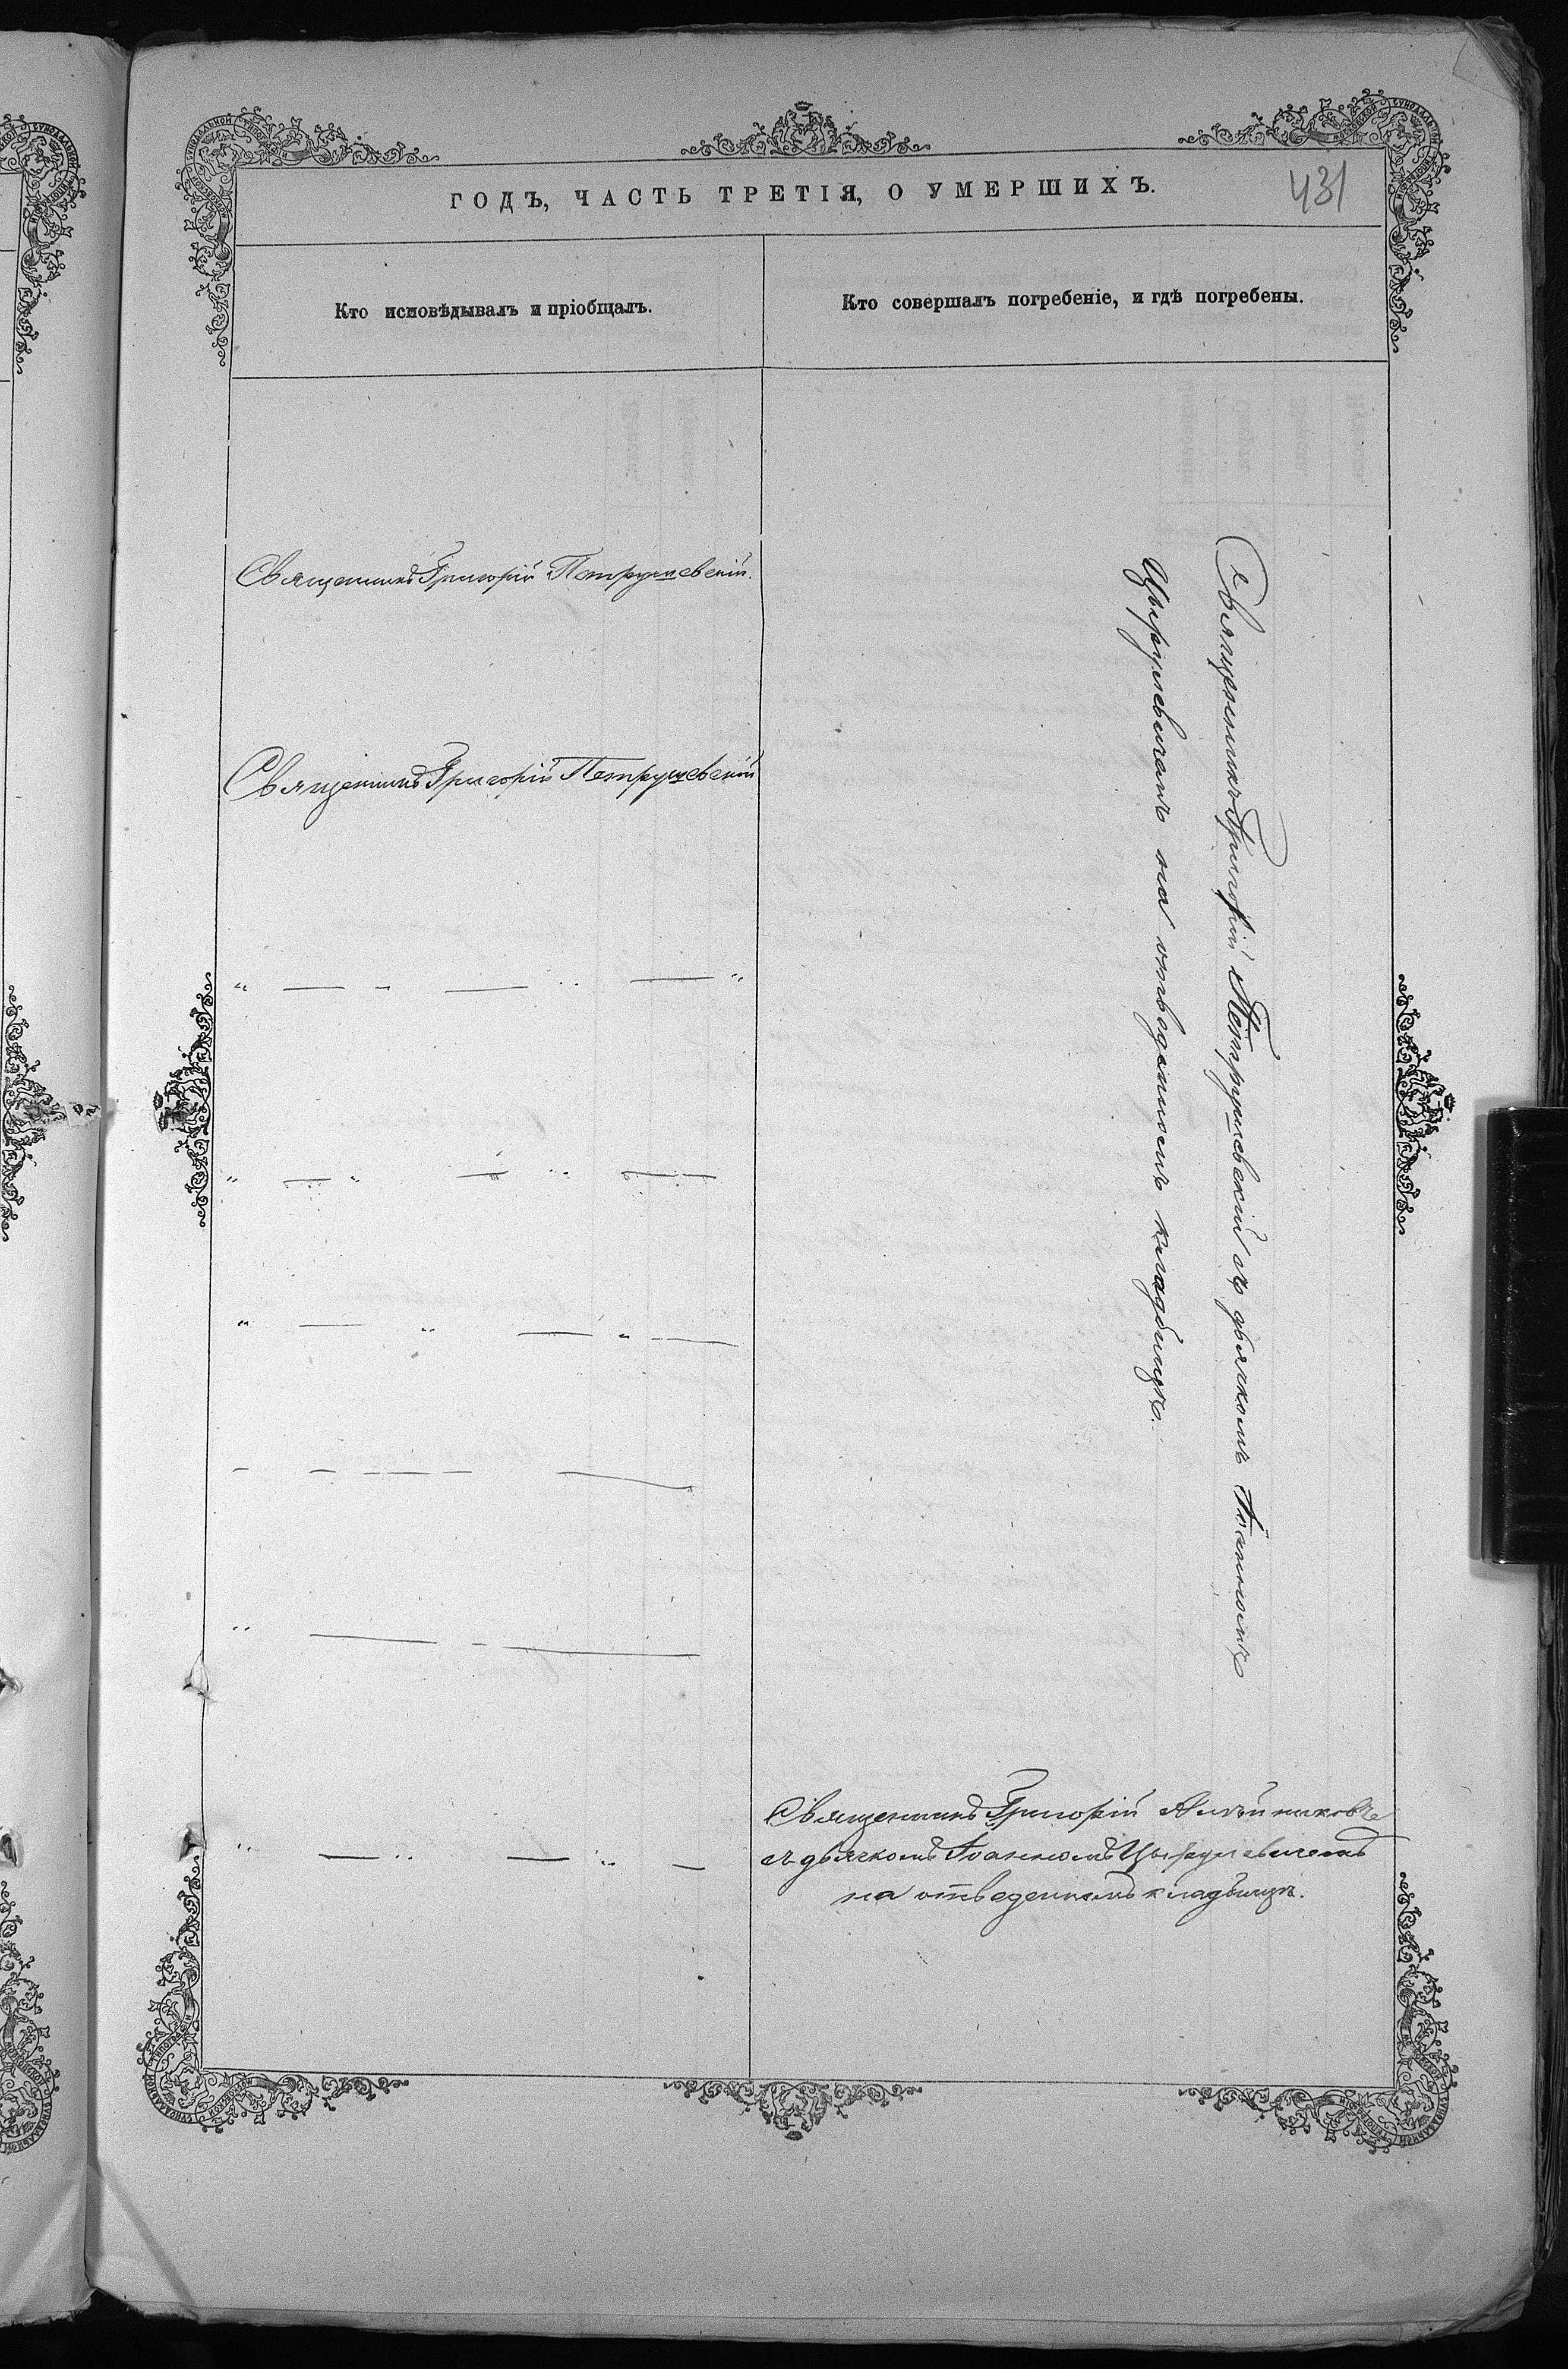 ГОДЪ, ЧАСТЬ ТРЕТІЯ, О УМЕРШИХЪ.
431
Кто исповѣдывалъ и пріобщалъ.
Кто совершалъ погребеніе, и гдѣ погребены.
Священникъ Григорій Петрушевскій.
Священникъ Григорій Петрушевскій
Священникъ Григорій Петрушевскій съ дьячкомъ Іоанномъ
Цырулевичемъ на отведенномъ кладбищѣ.
Священникъ Григорій
съ дьячкомъ Іоанномъ Цырулевичемъ
на отведенномъ кладбищѣ.